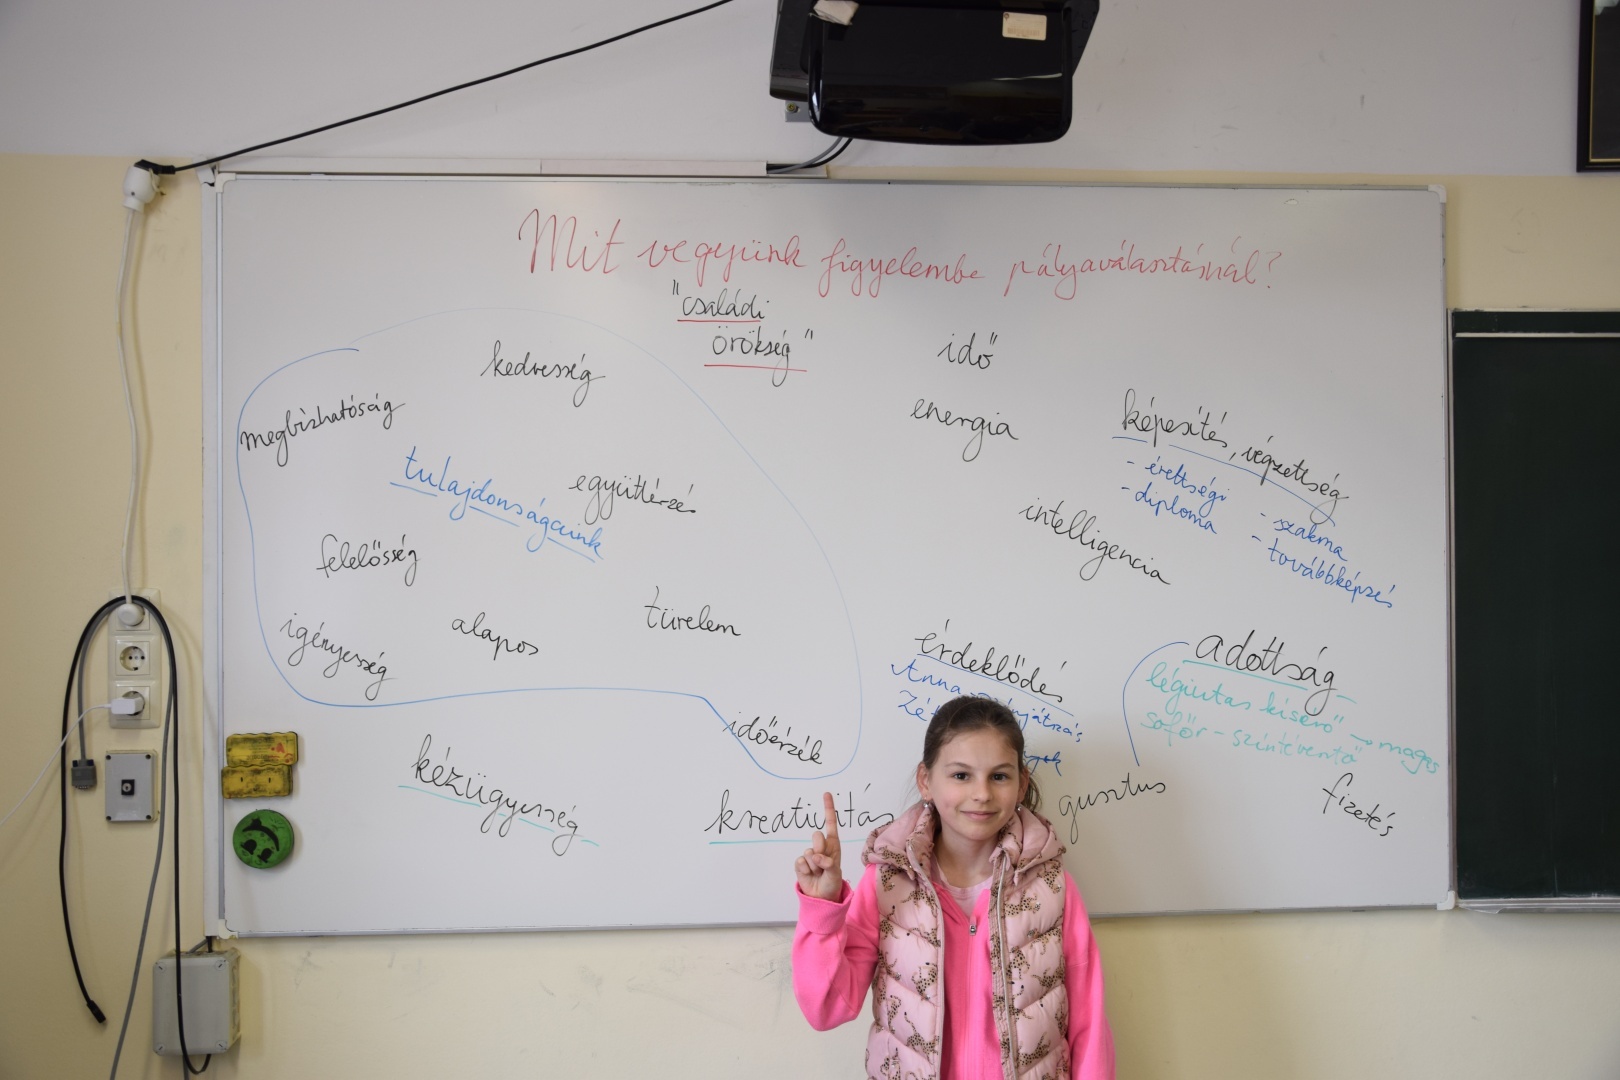 Mit vegyünk figyelembe pályaválasztásnál?
"családi
örökség"
kedvesség
idő
megbízhatóság
energia
képesítés, végzettség
- érettségi
- diploma
- szakma
- továbbképzés
tulajdonságaink
együttérzés
intelligencia
felelősség
türelem
alapos
igényesség
érdeklődés
Anna
adottság
légiutas kísérő → magas
sofőr - színtévesztő
időérzék
kézügyesség
kreativitás
gusztus
fizetés